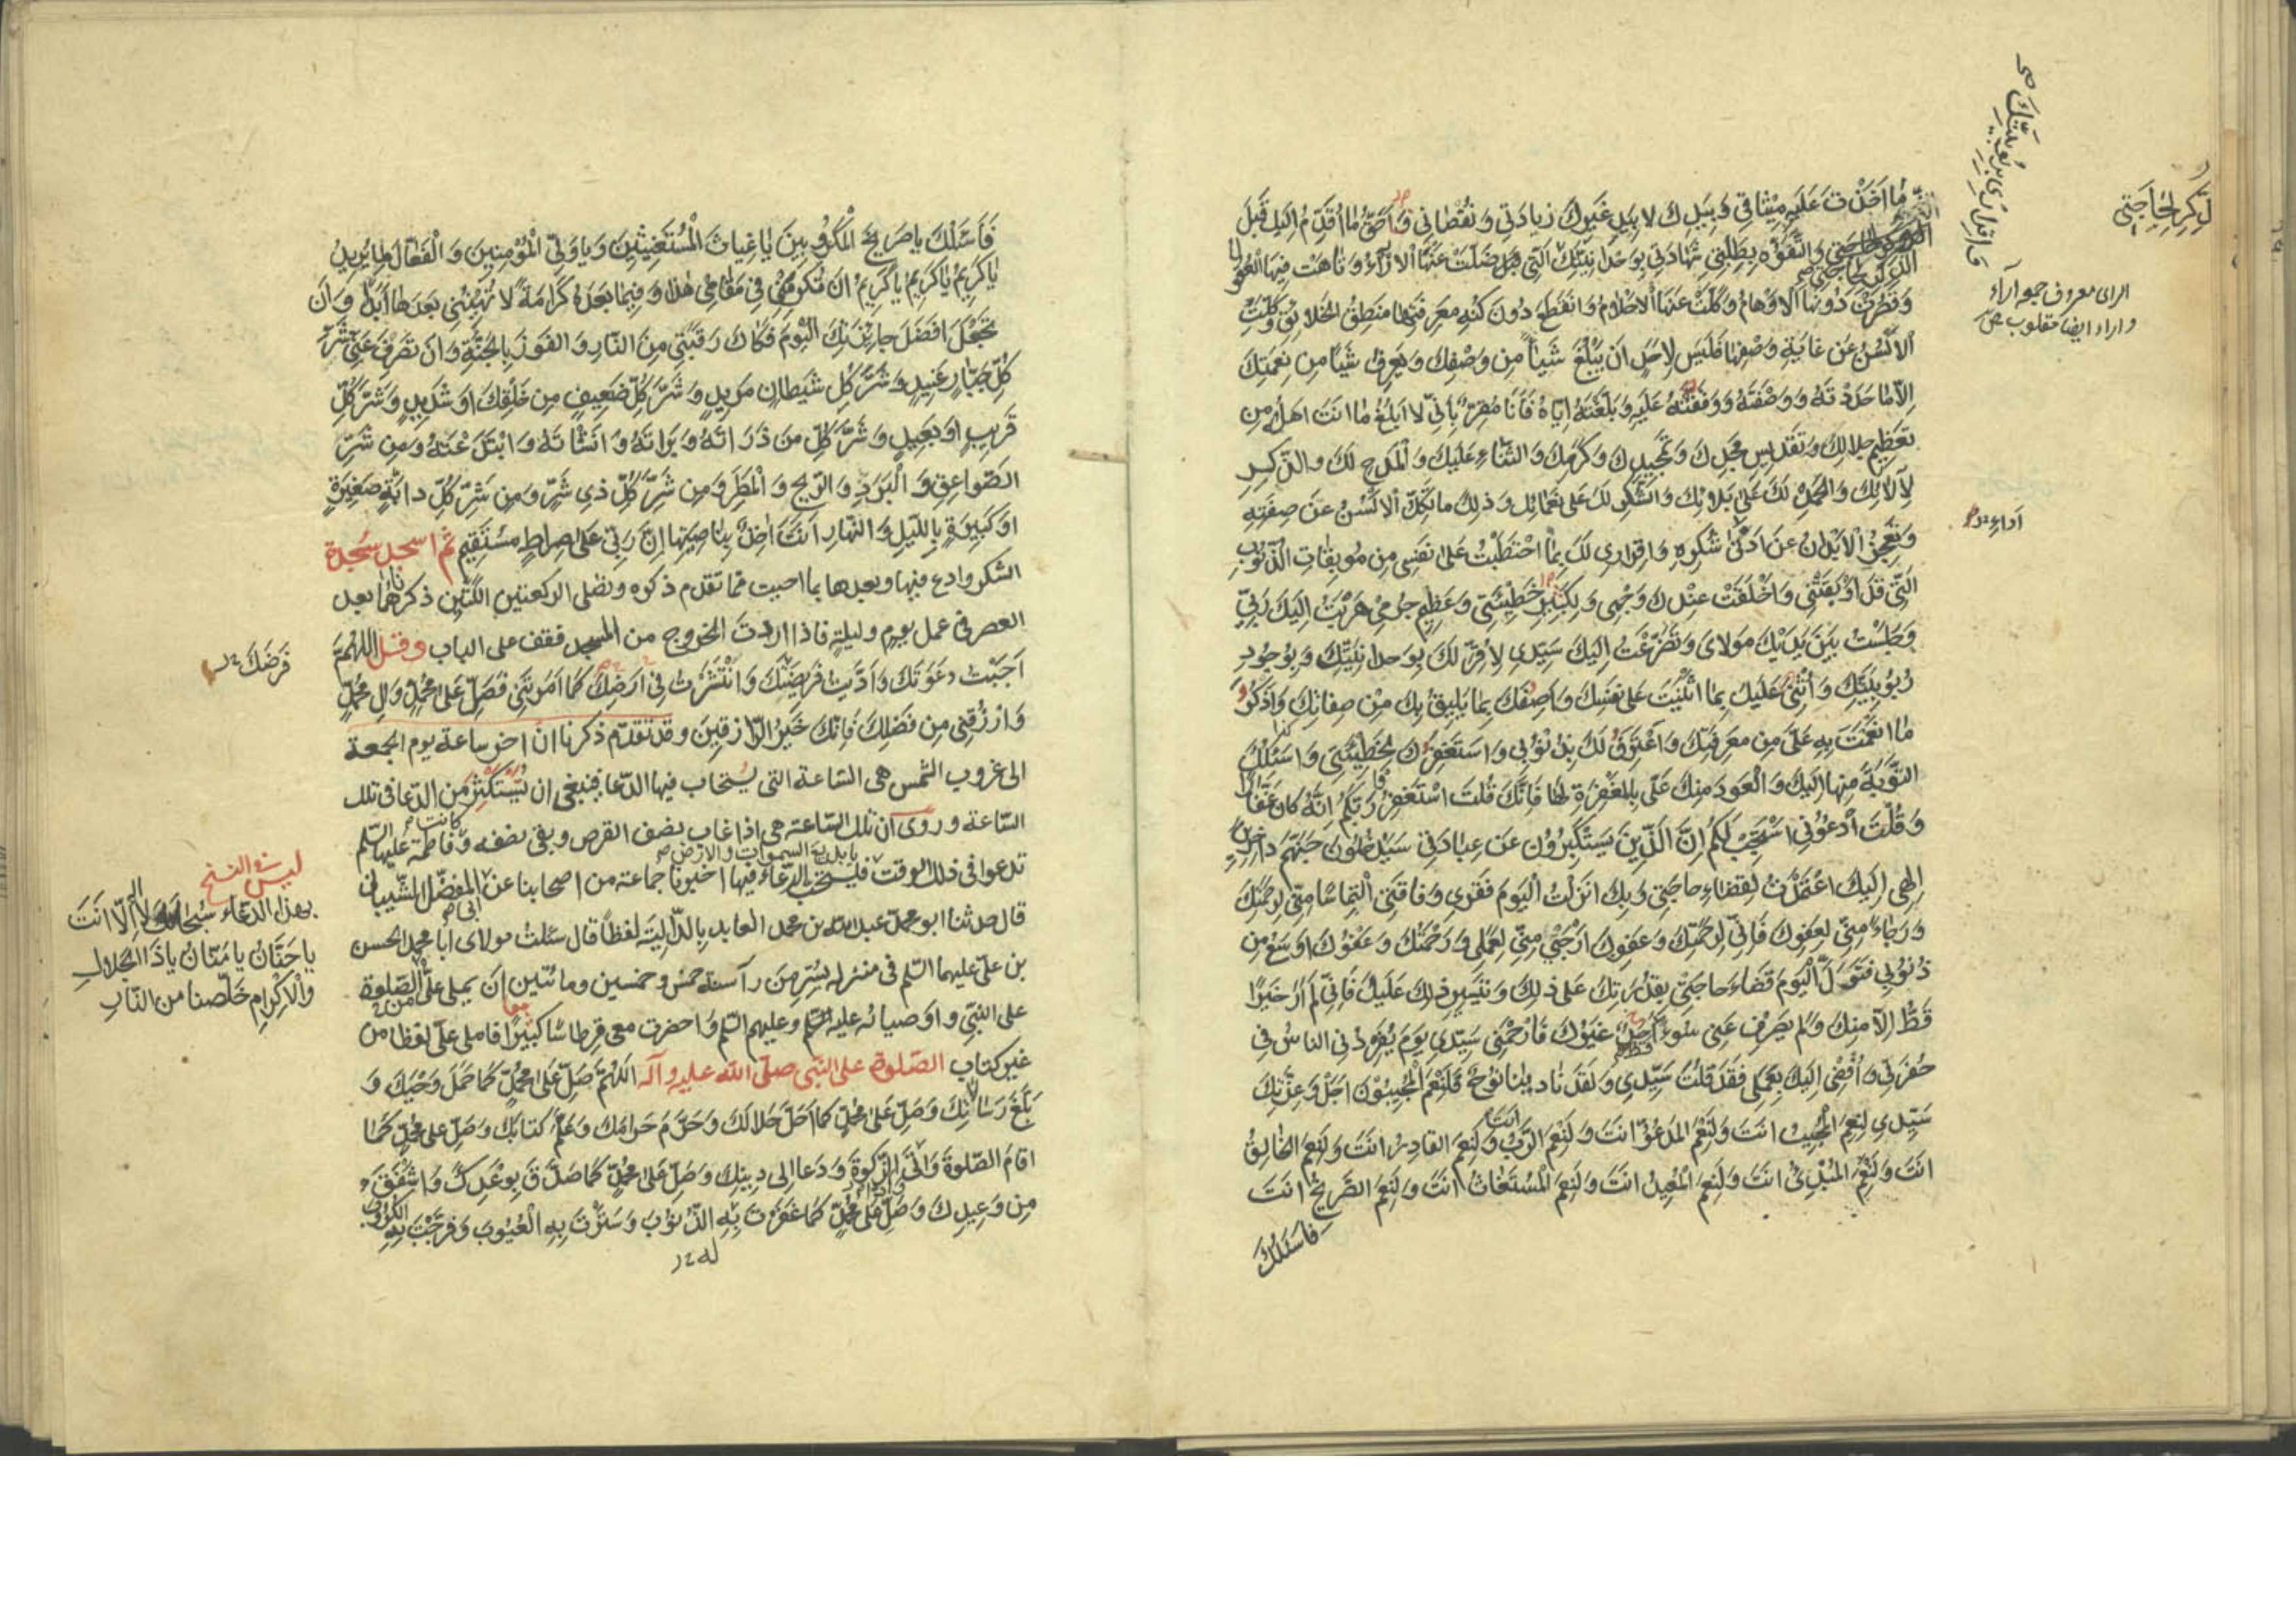 ما اخذت عليه ميثاقي وبيدك لا بيد غيرك زيادتي ونقصاني واحق ما اقدم اليك قبل
الذكر لحاجتي والتفوه بطلبتي شهادتي بوحدانيتك التي ضلت عنها الاراء وتاهت فيها العقول
وقصرت دونها الاوهام وكلت عنها الاحلام وانقطع دون كنه معرفتها منطق الخلائق وكلت
الالسن عن غاية وصفها فليس لاحد ان يبلغ شيئا من وصفك ويعرف شيئا من نعمتك
الا ما حددته ووصفته ووقفته عليه وبلغته اياه فانا مقر باني لا ابلغ ما انت اهله من
تعظيم جلالك وتقديس مجدك وتمجيدك وكرمك والثناء عليك والمدح لك والذكر
لآلائك والحمد لك على بلائك والشكر لك على نعمائك وذلك ما تكل الالسن عن صفته
وتعجز الابدان عن ادنى شكره واقراري لك بما احتطبت على نفسي من موبقات الذنوب
التي قد اوبقتني واخلقت عندك وجهي ولكبير خطيئتي وعظيم جرمي هربت اليك ربي
وجلست بين يديك مولاي وتضرعت اليك سيدي لاقر لك بوحدانيتك وبوجود
ربوبيتك واثني عليك بما اثنيت على نفسك واصفك بما يليق بك من صفاتك واذكر
ما انعمت به علي من معرفتك واعترف لك بذنوبي واستغفرك لخطيئتي واسئلك
التوبة منها اليك والعود منك علي بالمغفرة لها فانك قلت استغفروا ربكم انه كان غفارا
وقلت ادعوني استجب لكم ان الذين يستكبرون عن عبادتي سيدخلون جهنم داخرين
الهي اليك اعتمدت لقضاء حاجتي وبك انزلت اليوم فقري وفاقتي التماسا مني لرحمتك
ورجاء مني لعفوك فاني لرحمتك وعفوك ارجى مني لعملي ورحمتك وعفوك اوسع من
ذنوبي فتول اليوم قضاء حاجتي بقدرتك على ذلك وتيسير ذلك عليك فاني لم ار خيرا
قط الا منك ولم يصرف عني سوء احد غيرك فارحمني سيدي يوم يفردني الناس في
حفرتي وافضي اليك بعملي فقد قلت سيدي ولقد نادينا نوح فلنعم المجيبون اجل وعزتك
سيدي لنعم المجيب انت ولنعم المدعو انت ولنعم الرب انت ولنعم القادر انت ولنعم الخالق
انت ولنعم المبدئ انت ولنعم المعيد انت ولنعم المستغاث انت ولنعم الصريخ انت
فاسئلك
لذكر لحاجتي
الراى معروف جمعه آراء
واراء ايضا مقلوب
اداء
فاسئلك يا صريخ المكروبين يا غياث المستغيثين ويا ولي المؤمنين والفعال لما يريد
يا كريم يا كريم يا كريم ان تكرمني في مقامي هذا وفيما بعده كرامة لا تهينني بعدها ابدا وان
تجعل افضل جائزتك اليوم فكاك رقبتي من النار والفوز بالجنة وان تصرف عني شر
كل جبار عنيد وشر كل شيطان مريد وشر كل ضعيف من خلقك او شديد وشر كل
قريب او بعيد وشر كل من ذراته وبراته وانشاته وابتدعته ومن شر
الصواعق والبرد والريح والمطر ومن شر كل ذي شر ومن شر كل دابة صغيرة
او كبيرة بالليل والنهار انت اخذ بناصيتها ان ربي على صراط مستقيم ثم اسجد سجدة
الشكر وادع فيها وبعدها بما احببت مما تقدم ذكره وتصلي الركعتين اللتين ذكرناهما بعد
العصر في عمل يوم وليلة فاذا اردت الخروج من المسجد فقف على الباب وقل اللهم
اجبت دعوتك واديت فريضتك وانتشرت في ارضك كما امرتني فصل على محمد وال محمد
وارزقني من فضلك فانك خير الرازقين وقد تقدم ذكرنا ان اخر ساعة يوم الجمعة
الى غروب الشمس هي الساعة التي يستجاب فيها الدعا فينبغي ان يستكثر من الدعا في تلك
الساعة وروى ان تلك الساعة هي اذا غاب نصف القرص وبقي نصفه وفاطمة عليها السلم كانت
تدعوا في ذلك الوقت فيستحب الدعاء فيها اخبرنا جماعة من اصحابنا عن المفضل الشيباني
قال حدثنا ابو محمد عبد الله بن محمد العابد بالدالية لفظا قال سئلت مولاى ابا محمد الحسن
بن علي عليهما السلم في منزله بسر من رآ سنة خمس وخمسين ومائتين ان يملي علي الصلوة
على النبي واوصيائه عليه وعليهم السلم واحضرت معي قرطاسا كبيرا فاملى علي لفظا من
غير كتاب الصلوة على النبي صلى الله عليه وآله اللهم صل على محمد كما حمل وحيك و
بلغ رسالاتك وصل على محمد كما احل حلالك وحرم حرامك وعلم كتابك وصل على محمد كما
اقام الصلوة واتى الزكوة ودعا الى دينك وصل على محمد كما صدق بوعدك واشفق
من وعيدك وصل على محمد كما غفرت به الذنوب وسترت به العيوب وفرجت به الكروب
فرضك
ليس في النسخ
بهذا الدعاء سبحانك لا اله الا انت
يا حنان يا منان يا ذا الجلال
والاكرام خلصنا من النار
يا بديع السموات والارض